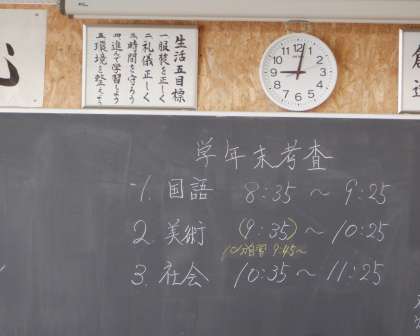 生活五目標
一 服装を正しく
二 礼儀正しく
三 時間を守ろう
四 進んで学習しよう
五 環境を整えよう
12
1
2
3
4
5
6
7
8
9
10
11
学年末考査
1. 国語 8:35 〜 9:25
2. 美術 (9:35) 〜 10:25
10分自習 9:45〜
3. 社会 10:35 〜 11:25